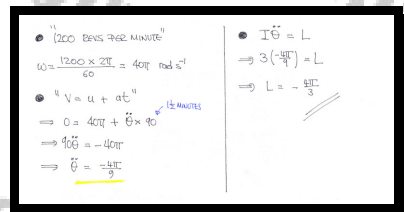 "1200 REVS PER MINUTE"
ω = 1200 × 2π / 60 = 40π rad s⁻¹
"V = u + at"
1½ MINUTES
⇒ 0 = 40π + θ̈ × 90
⇒ 90θ̈ = -40π
⇒ θ̈ = -4π/9
Iθ̈ = L
⇒ 3(-4π/9) = L
⇒ L = -4π/3